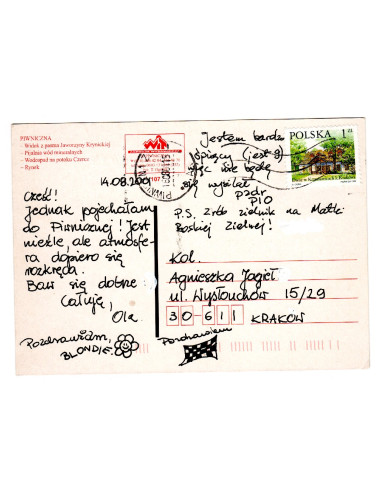 PIWNICZNA
- Widok z pasma Jaworzyny Krynickiej
- Pijalnia wód mineralnych
- Wodospad na potoku Czercz
- Rynek
POLSKA 1
14.08.2001
Cześć!
Jednak pojechałam
do Piwnicznej! Jest
nieźle, ale atmosfe-
ra dopiero się
rozkręca.
Baw się dobrze
Całuję,
Ola
Pozdrawiam,
BLONDIE
Jestem bardzo
śpiący (jest 9)
więc nie będę
się wysilał
PIO
P.S. Zrób zielnik na Matki
Boskiej Zielnej!
Kol.
Agnieszka Jagieł
ul. Wysłouchów 15/29
30-611 KRAKÓW